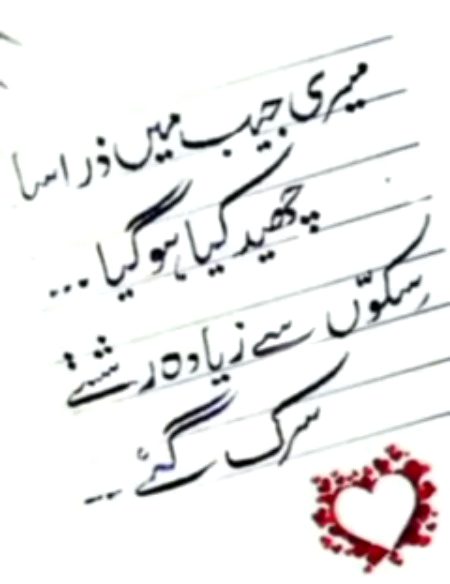 میری جیب میں ذرا سا
چھید کیا ہو گیا ...
سِکوّں سے زیادہ رشتے
سرک گئے ..